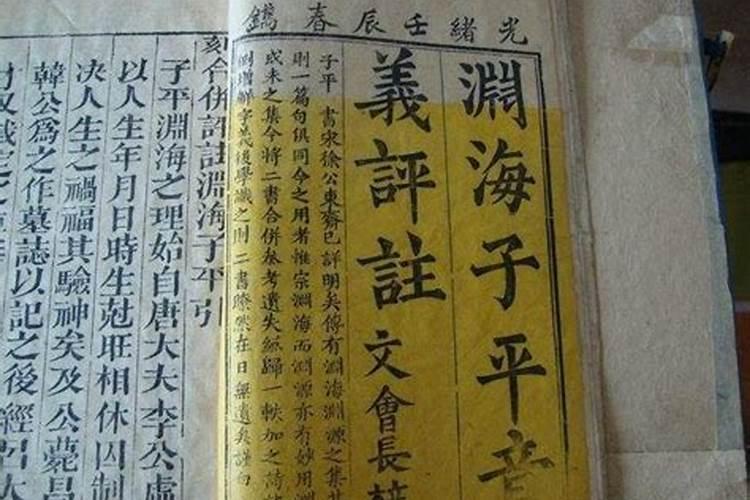 光緒壬辰春鐫
淵海子平音
義評註
文會長
子平書宋徐公東齋已詳明矣傳有淵海淵源之集
則一篇句俱同今之用者惟宗淵海而淵源亦有妙用
或未之集今將二書合併參考遺失
字義後學識之則二書瞭然在目無遺矣
刻合併評註淵海子平引
子平淵海之理始自唐大夫李公虛
以人生年月日時生尅旺相休囚制
决人生之禍福其驗神矣及公薨昌
韓公爲之作墓誌以記之後經呂大